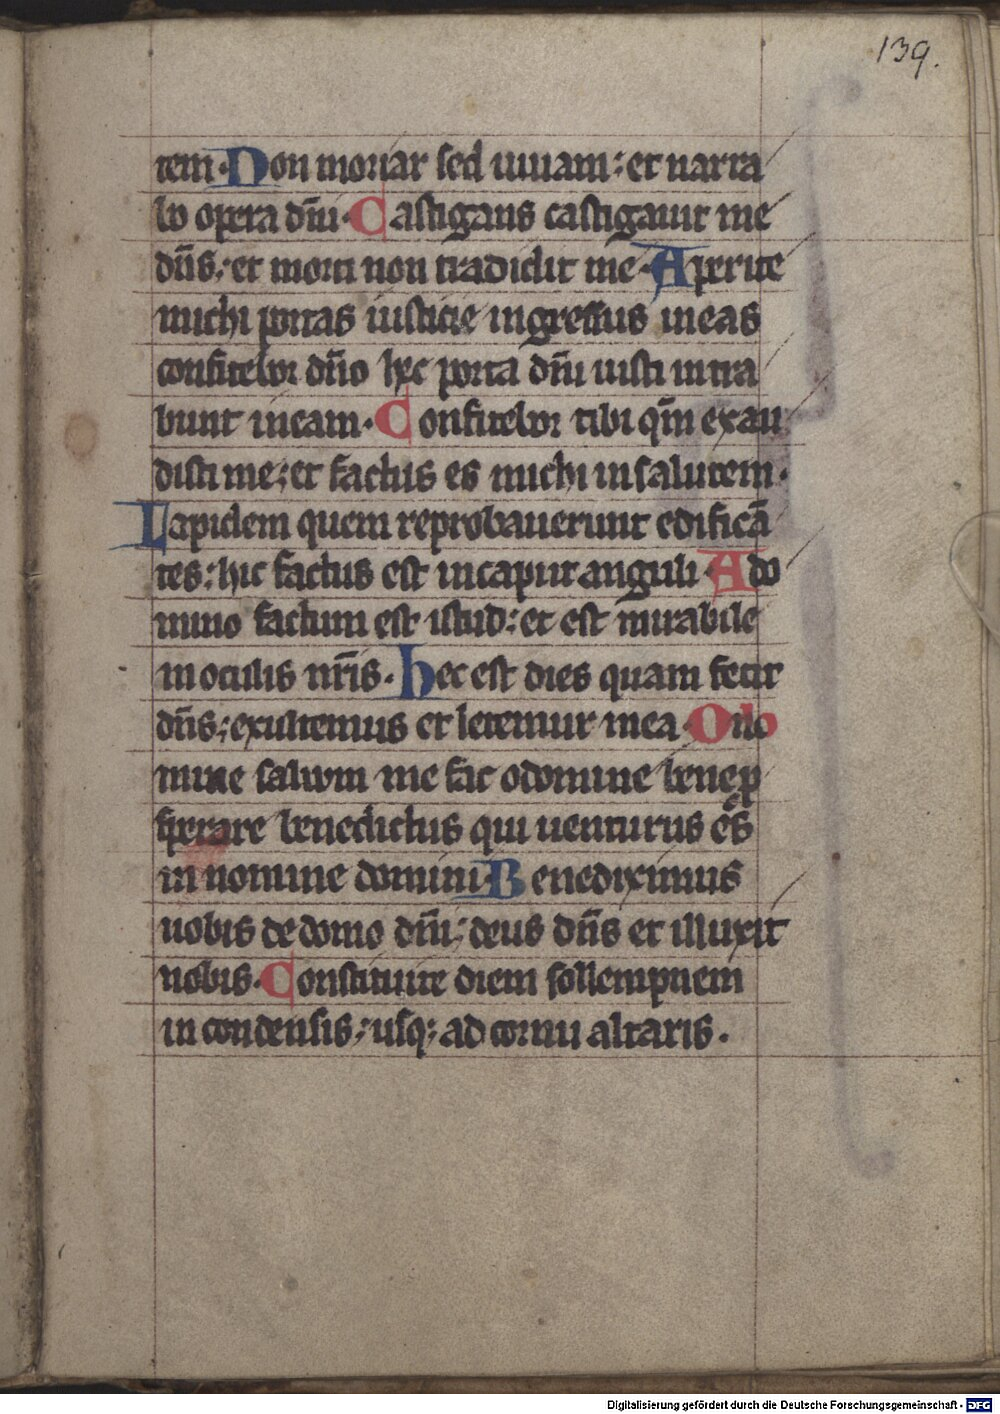 139.
tem. Non moriar sed uiuam: et narra
bo opera dn̄i. Castigans castigauit me
dn̄s: et morti non tradidit me. Aperite
michi portas iusticie ingressus in eas
confitebor dn̄o hec porta dn̄i iusti intra
bunt in eam. Confitebor tibi qm̄ exau
disti me: et factus es michi in salutem.
Lapidem quem reprobauerunt edificā
tes: hic factus est in caput anguli. A do
mino factum est istud: et est mirabile
in oculis nr̄is. hec est dies quam fecit
dn̄s: exultemus et letemur in ea. O do
mine saluum me fac o domine bene ꝓ
sperare benedictus qui uenturus es
in nomine domini. Benediximus
uobis de domo dn̄i: deus dn̄s et illuxit
nobis. Constituite diem sollempnem
in condensis: usq; ad cornu altaris.
Digitalisierung gefördert durch die Deutsche Forschungsgemeinschaft - DFG